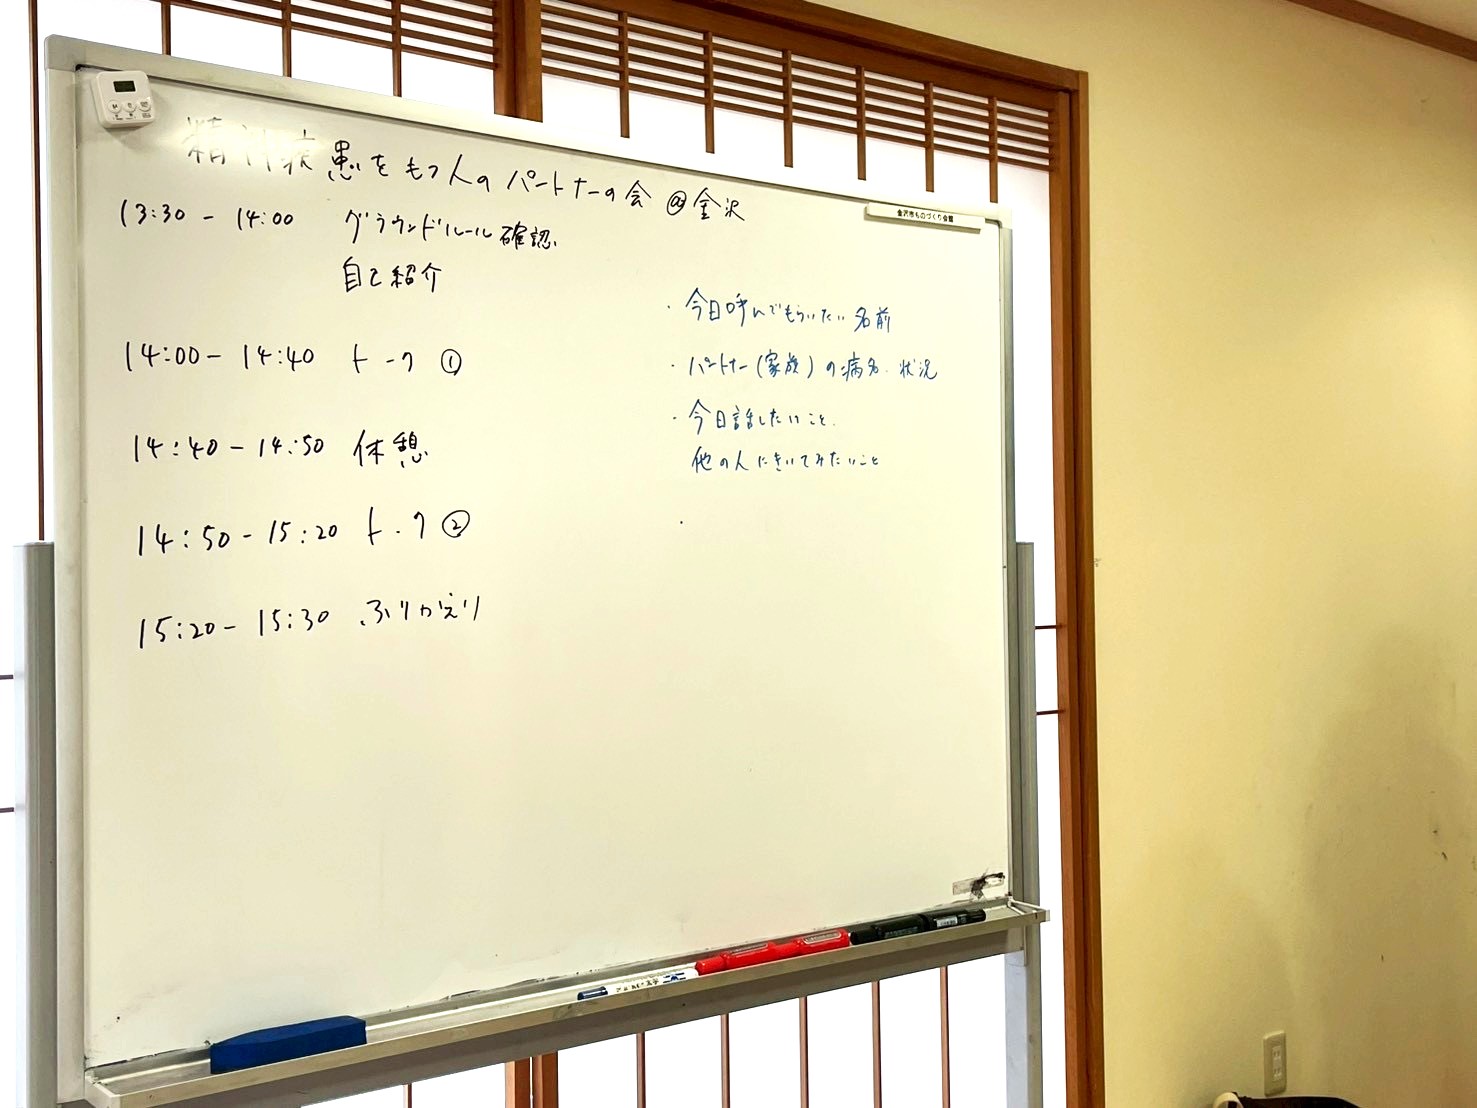 精神疾患をもつ人のパートナーの会 @金沢
金沢市ものづくり会館
13:30 - 14:00 グラウンドルール確認
自己紹介
14:00 - 14:40 トーク ①
14:40 - 14:50 休憩
14:50 - 15:20 トーク ②
15:20 - 15:30 ふりかえり
・今日呼んでもらいたい名前
・パートナー(家族)の病名・状況
・今日話したいこと
他の人にきいてみたいこと
・